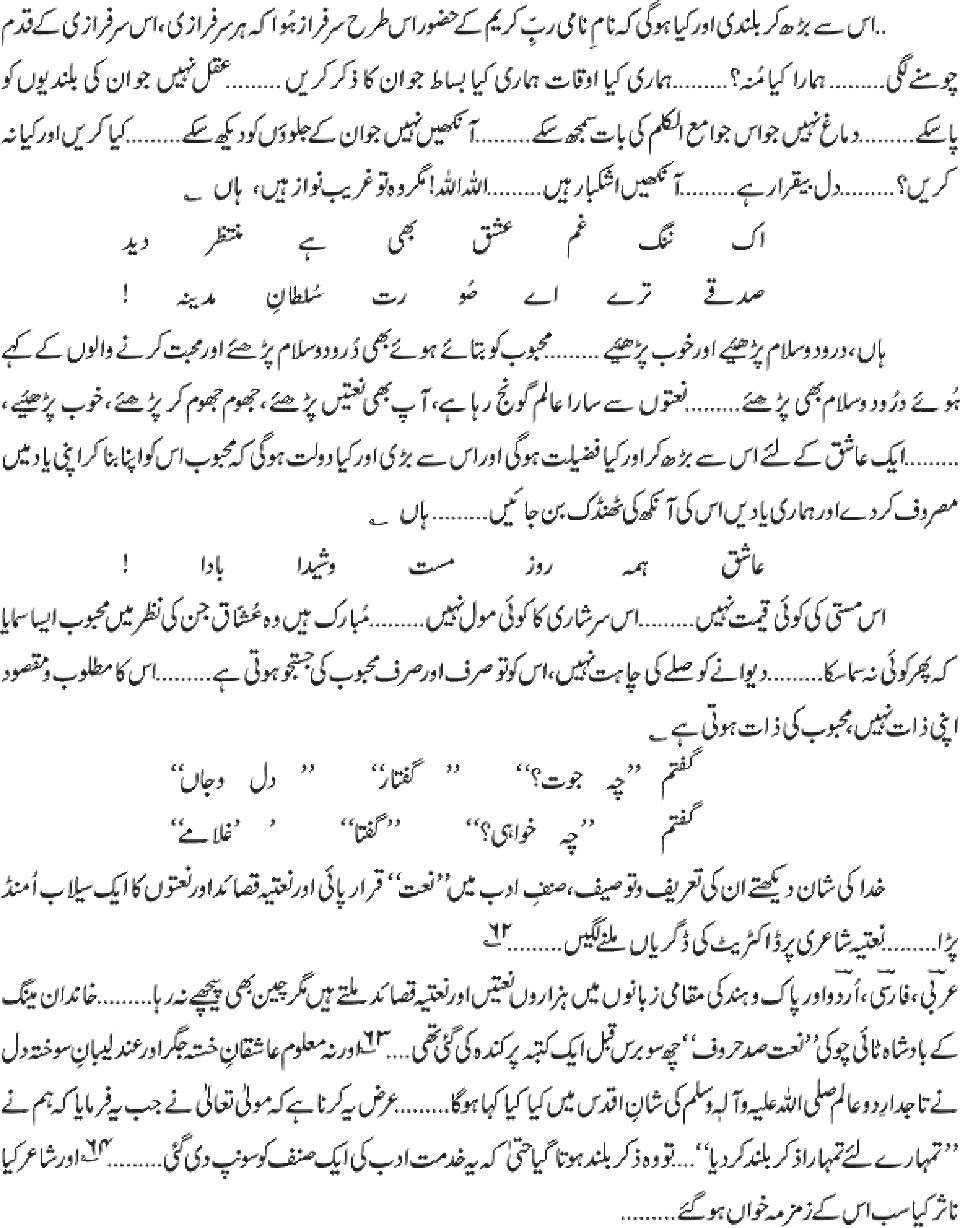 ..اس سے بڑھ کر بلندی اور کیا ہوگی کہ نامِ نامی ربِّ کریم کے حضور اس طرح سرفراز ہُوا کہ ہر سرفرازی، اس سرفرازی کے قدم
چومنے لگی......... ہمارا کیا مُنہ؟.........ہماری کیا اوقات ہماری کیا بساط جو ان کا ذکر کریں .........عقل نہیں جو ان کی بلندیوں کو
پاسکے.........دماغ نہیں جو اس جوامع الکلم کی بات سمجھ سکے.........آنکھیں نہیں جو ان کے جلوؤں کو دیکھ سکے.........کیا کریں اور کیا نہ
کریں؟.........دل بیقرار ہے.........آنکھیں اشکبار ہیں.........اللہ اللہ! مگر وہ تو غریب نواز ہیں، ہاں ؎
اک ننگ غم عشق بھی ہے منتظر دید
صدقے ترے اے صُو رت سُلطانِ مدینہ !
ہاں، درود وسلام پڑھئیے اور خوب پڑھئیے .........محبوب کو بتائے ہوئے بھی دُرود وسلام پڑھئے اور محبت کرنے والوں کے کہے
ہُوئے درُود وسلام بھی پڑھئے.........نعتوں سے سارا عالم گونج رہا ہے، آپ بھی نعتیں پڑھئے، جھوم جھوم کر پڑھئے، خوب پڑھئیے،
.........ایک عاشق کے لئے اس سے بڑھ کر اور کیا فضیلت ہوگی اور اس سے بڑی اور کیا دولت ہوگی کہ محبوب اس کو اپنا بنا کر اپنی یاد میں
مصروف کردے اور ہماری یادیں اس کی آنکھ کی ٹھنڈک بن جائیں.........ہاں ؎
عاشق ہمہ روز مست وشیدا بادا !
اس مستی کی کوئی قیمت نہیں.........اس سرشاری کا کوئی مول نہیں.........مُبارک ہیں وہ عُشّاق جن کی نظر میں محبوب ایسا سمایا
کہ پھر کوئی نہ سما سکا.........دیوانے کو صلے کی چاہت نہیں، اس کو تو صرف اور صرف محبوب کی جستجو ہوتی ہے.........اس کا مطلوب ومقصود
اپنی ذات نہیں، محبوب کی ذات ہوتی ہے ؎
گفتم ”چہ جوت؟“ ” گفتار“ ” دل وجاں“
گفتم ”چہ خواہی؟“ ”گفتا“ ’ ’غلامے“
خدا کی شان دیکھتے ان کی تعریف وتوصیف، صنفِ ادب میں ”نعت“ قرار پائی اور نعتیہ قصائد اور نعتوں کا ایک سیلاب اُمنڈ
پڑا.........نعتیہ شاعری پر ڈاکٹریٹ کی ڈگریاں ملنے لگیں.........۶۲؎
عربی، فارسی، اُردو اور پاک و ہند کی مقامی زبانوں میں ہزاروں نعتیں اور نعتیہ قصائد ملتے ہیں مگر چین بھی پیچھے نہ رہا.........خاندان مینگ
کے بادشاہ ٹائی چو کی ”نعت صد حروف“ چھ سو برس قبل ایک کتبہ پر کندہ کی گئی تھی ....۶۳؎ اور نہ معلوم عاشقانِ خستہ جگر اور عندلیبانِ سوختہ دل
نے تاجدارِ دو عالم صلی اللہ علیہ وآلہٖ وسلم کی شانِ اقدس میں کیا کیا کہا ہوگا.........عرض یہ کرنا ہے کہ مولیٰ تعالیٰ نے جب یہ فرمایا کہ ہم نے
”تمہارے لئے تمہارا ذکر بلند کردیا“....تو وہ ذکر بلند ہوتا گیا حتیٰ کہ یہ خدمت ادب کی ایک صنف کو سونپ دی گئی.........۶۴؎ اور شاعر کیا
ناثر کیا سب اس کے زمزمہ خواں ہوگئے.........